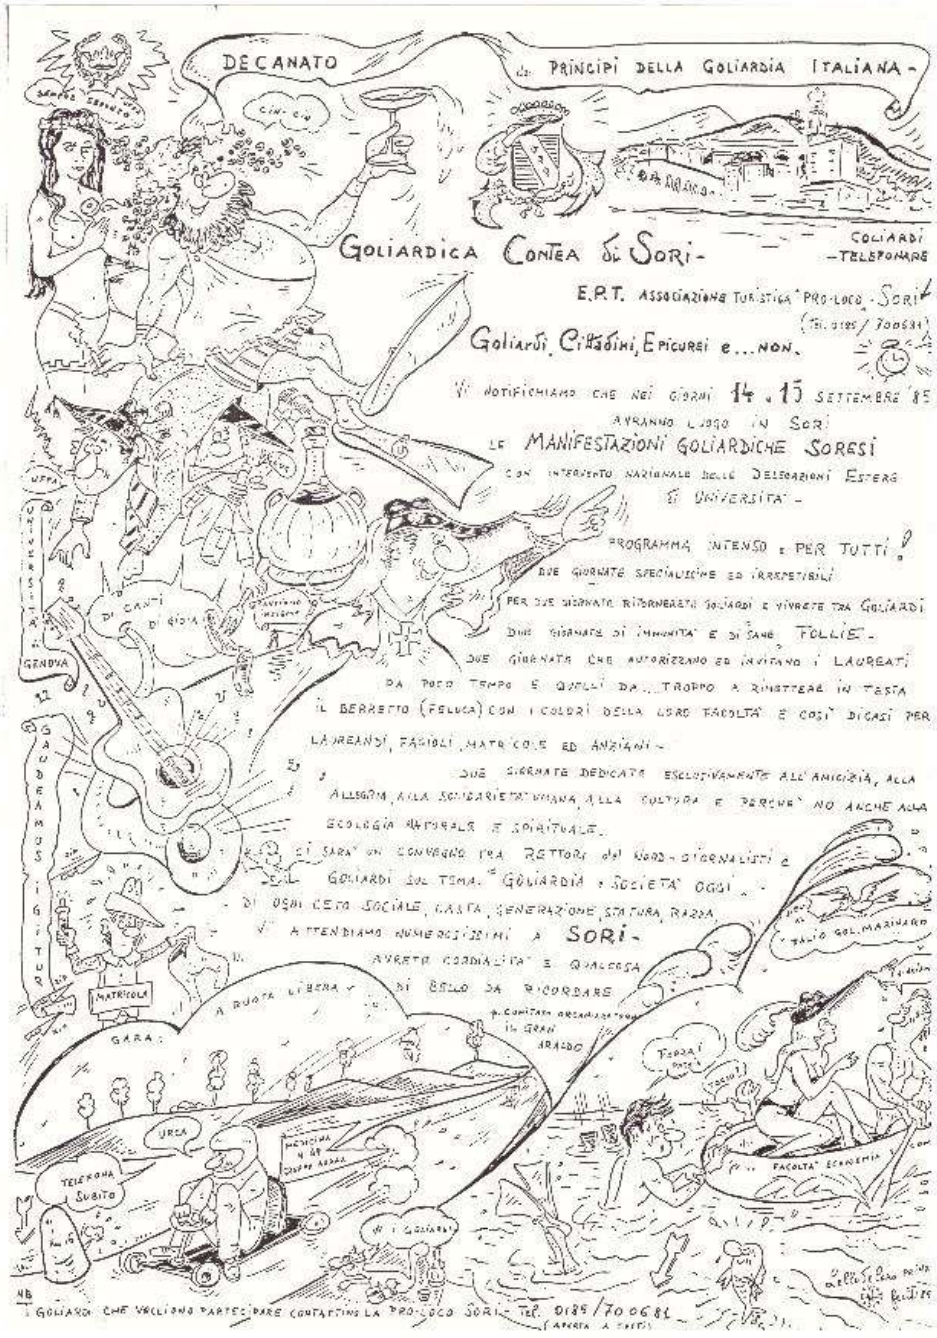 DECANATO
dei PRINCIPI DELLA GOLIARDIA ITALIANA -
SEMPRE
CIN CIN
GOLIARDICA CONTEA di SORI -
GOLIARDI
- TELEFONARE
E.P.T. ASSOCIAZIONE TURISTICA "PRO-LOCO - SORI"
(TEL. 0185/700681)
Goliardi, Cittadini, Epicurei e... NON.
Vi NOTIFICHIAMO CHE NEI GIORNI 14 e 15 SETTEMBRE '85
AVRANNO LUOGO IN SORI
LE MANIFESTAZIONI GOLIARDICHE SORESI
CON INTERVENTO NAZIONALE DELLE DELEGAZIONI ESTERE
di UNIVERSITA' -
UFFA
UNIVERSITA' di
GENOVA
PROGRAMMA INTENSO e PER TUTTI!
DUE GIORNATE SPECIALISSIME ED IRREPETIBILI
DI CANTI
DI GIOIA
PER DUE GIORNATE RITORNERETE GOLIARDI E VIVRETE TRA GOLIARDI
DUE GIORNATE DI IMMUNITA' E DI SANE FOLLIE -
DUE GIORNATE CHE AUTORIZZANO ED INVITANO I LAUREATI
DA POCO TEMPO E QUELLI DA... TROPPO A RIMETTERE IN TESTA
IL BERRETTO (FELUCA) CON I COLORI DELLA LORO FACOLTA' E COSI' DICASI PER
LAUREANDI, FAGIOLI, MATRICOLE ED ANZIANI -
DUE GIORNATE DEDICATE ESCLUSIVAMENTE ALL'AMICIZIA, ALLA
ALLEGRIA, ALLA SOLIDARIETA' UMANA, ALLA CULTURA E PERCHE' NO ANCHE ALLA
ECOLOGIA NATURALE E SPIRITUALE.
GAUDEAMUS IGITUR
CI SARA' UN CONVEGNO FRA RETTORI del NORD - GIORNALISTI e
GOLIARDI SUL TEMA "GOLIARDIA e SOCIETA' OGGI"
DI OGNI CETO SOCIALE, CASTA, GENERAZIONE, STATURA, RAZZA,
Vi ATTENDIAMO NUMEROSISSIMI A SORI -
AVRETE CORDIALITA' E QUALCOSA
DI BELLO DA RICORDARE
p. COMITATO ORGANIZZATORE
IL GRAN
ARALDO
ZIP
MATRICOLA
PALIO GOL. MARINARO
GARA:
A RUOTA LIBERA
FORZA!
URCA
MEDICINA
TELEFONA
SUBITO
FACOLTA' ECONOMIA
W I GOLIARDI
NB
I GOLIARDI CHE VOGLIONO PARTECIPARE CONTATTINO LA PRO-LOCO SORI - Tel. 0185/700681
(APERTA A TUTTI)